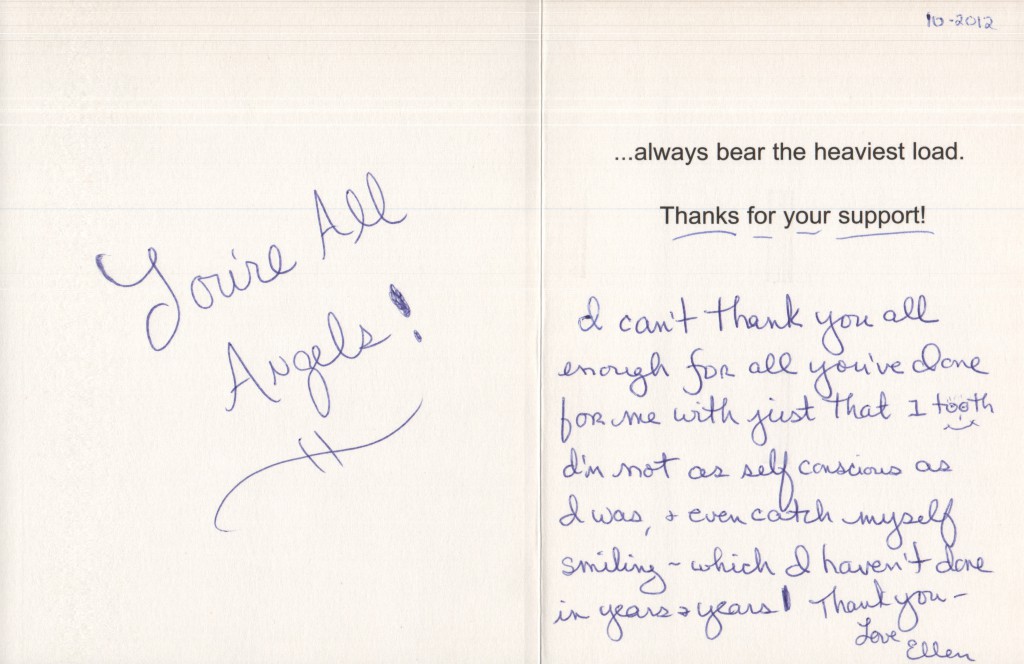 You're All
Angels!
10-2012
...always bear the heaviest load.
Thanks for your support!
I can't thank you all
enough for all you've done
for me with just that 1 tooth
I'm not as self conscious as
I was, & even catch myself
smiling - which I haven't done
in years & years! Thank you -
Love
Ellen